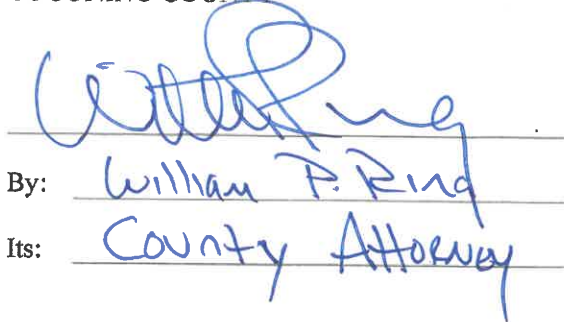 By: William P. Ring
Its: County Attorney